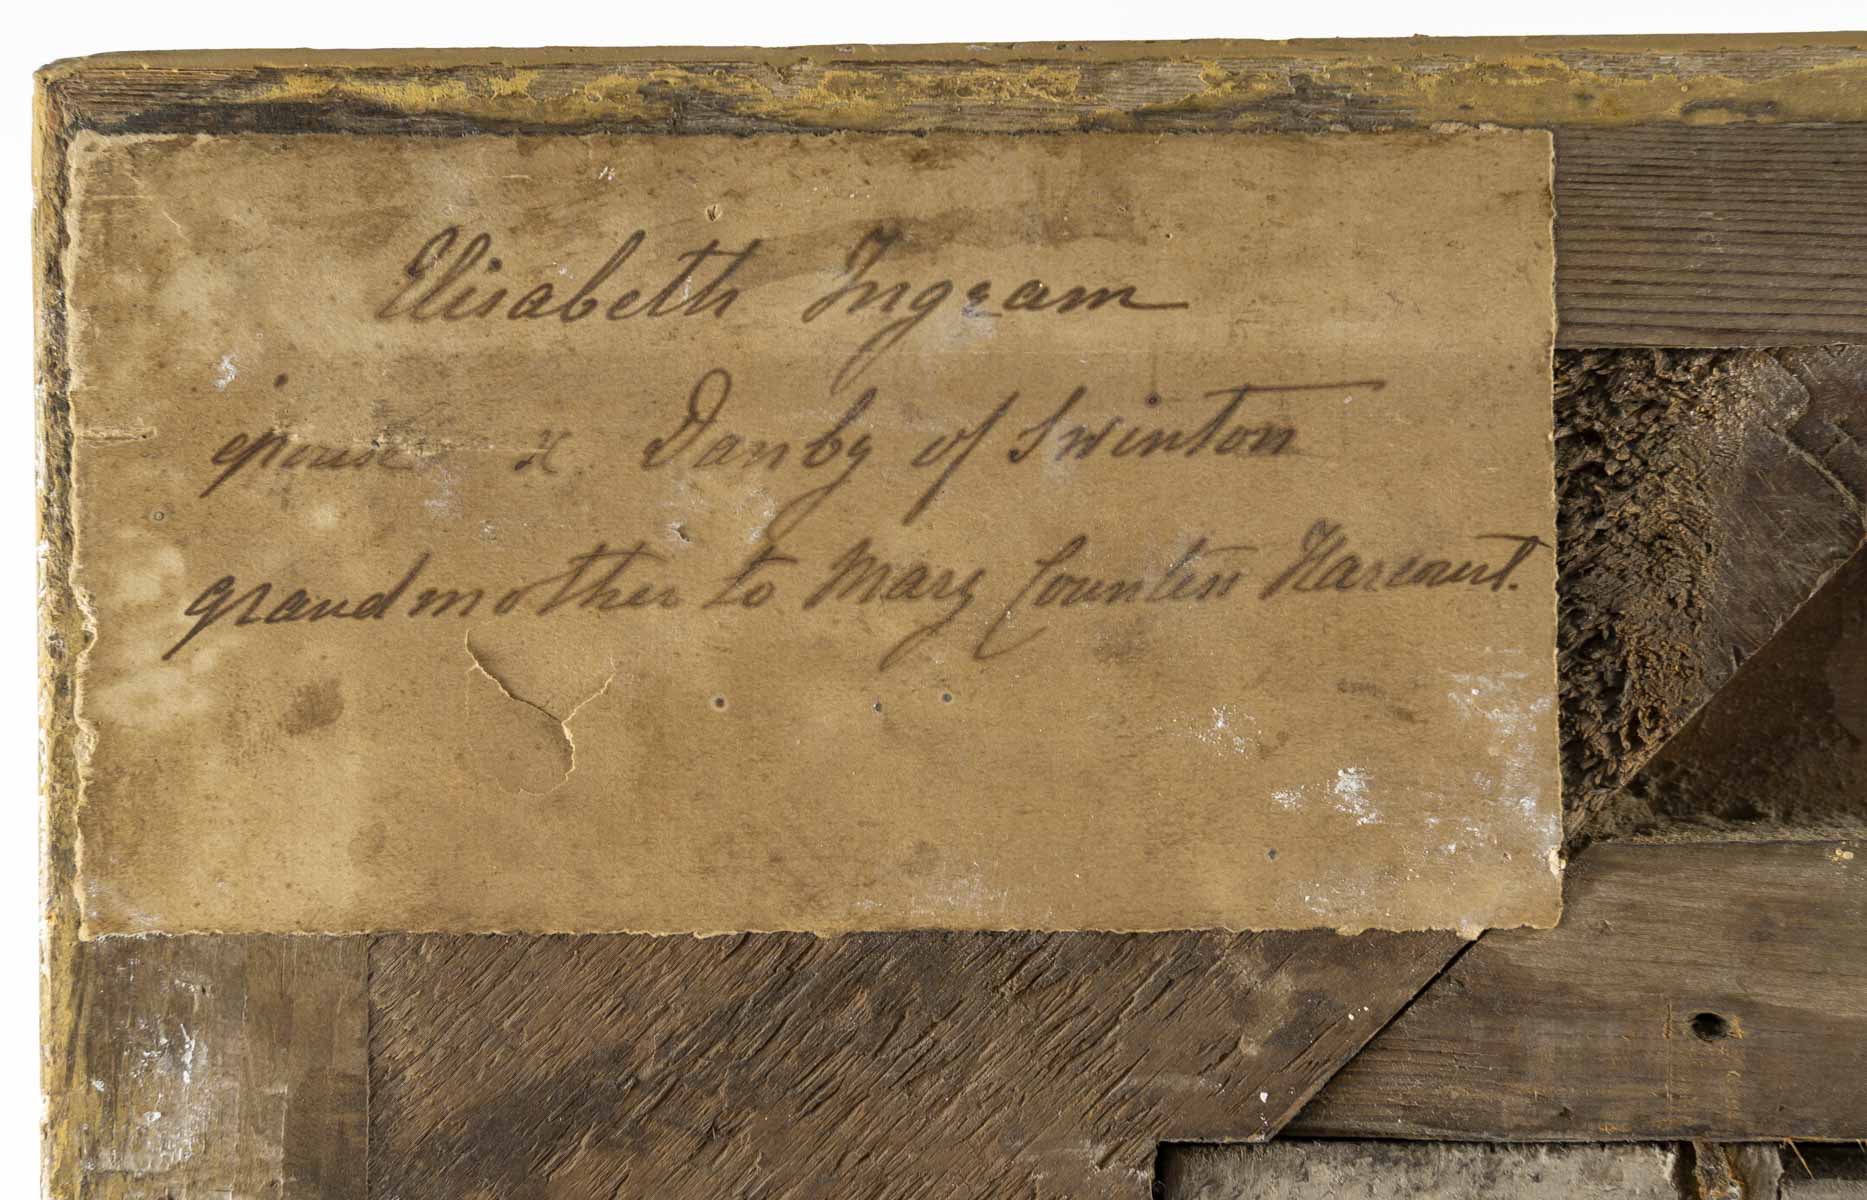 Elisabeth Ingram
epouse x Danby of Swinton
grandmother to Mary Countess Harcourt.